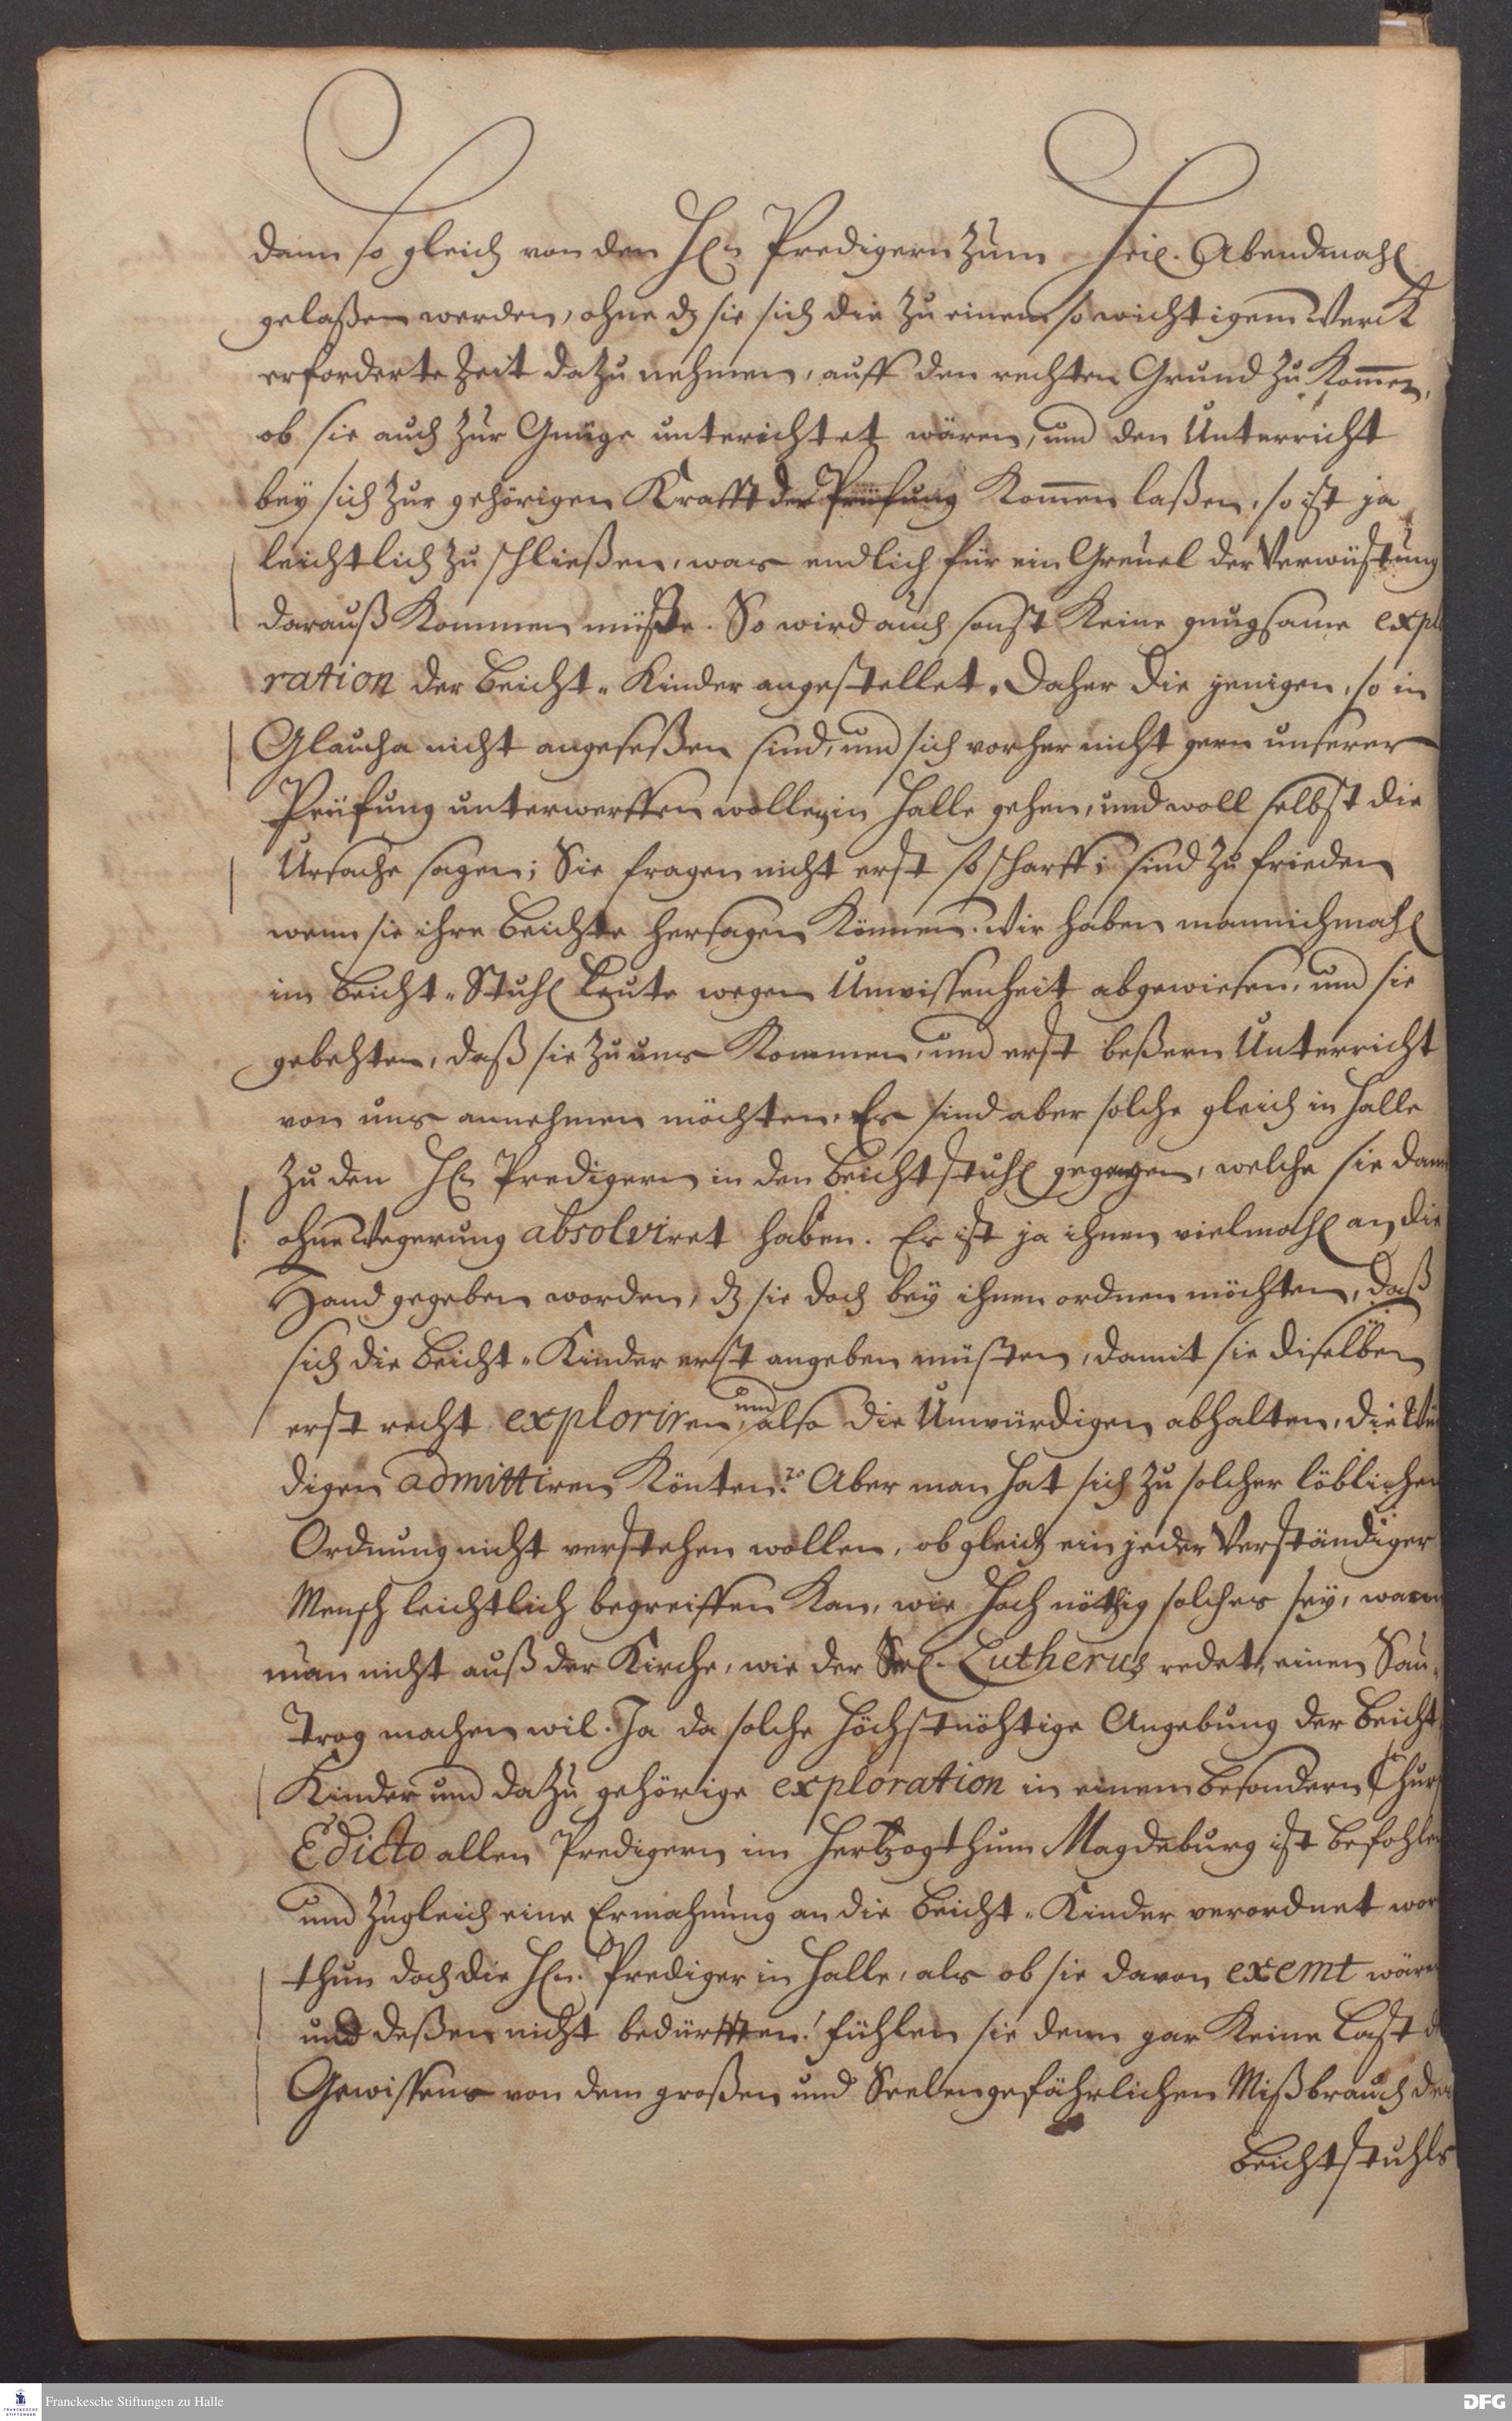 dann so gleich von den Hℓn Predigern zum Heil. Abendmahl
gelaßen werden, ohne dz sie sich die zu einem so wichtigem Werck
erforderte Zeit dazu nehmen, auff den rechten Grund zu kom̅en,
ob sie auch zur Gnüge unterichtet wären, und den Unterricht
bey sich zur gehörigen Krafft der Prüfung kom̅en laßen, so ist ja
leichtlich zu schließen, was endlich für ein Greuel der Verwüstung
darauß kommen müste. So wird auch sonst keine gnugsame expl
ration der Beicht-Kinder angestellet. Daher die jenigen, so in
Glaucha nicht angeseßen sind, und sich vorher nicht gern unserer
Prüfung unterwerffen wollen, in Halle gehen, und woll selbst die
Ursache sagen; Sie fragen nicht erst so scharff; sind zu frieden
wenn sie ihre Beichte hersagen können. Wir haben mannichmahl
im Beicht-Stuhl Leute wegen Unwissenheit abgewiesen, und sie
gebehten, daß sie zu uns kommen, und erst beßern Unterricht
von uns annehmen möchten. Es sind aber solche gleich in Halle
zu den Hℓn Predigern in den Beichtstuhl gegangen, welche sie dann
ohne Wegerung absolviret haben. Es ist ja ihnen vielmahl an die
Hand gegeben worden, dz sie doch bey ihnen ordnen möchten, daß
sich die Beicht-Kinder erst angeben müßten, damit sie diselben
erst recht exploriren, und also die Unwürdigen abhalten, die Wü
digen admittiren könten. Aber man hat sich zu solcher löblichen
Ordnung nicht verstehen wollen, ob gleich ein jeder Verständiger
Mensch leichtlich begreiffen kan, wie hoch nöthig solches sey, wann
man nicht auß der Kirche, wie der Sel. Lutherus redet, einen Sau-
Trog machen wil. Ja da solche höchstnöhtige Angebung der Beicht
Kinder und dazu gehörige exploration in einem besondern Churf
Edicto allen Predigern im Hertzogthum Magdeburg ist befohlen
und zugleich eine Ermahnung an die Beicht-Kinder verordnet wor
thun doch die Hℓn. Prediger in Halle, als ob sie davon exemt wären
und deßen nicht bedürfften! fühlen sie denn gar keine Last d
Gewissens von dem großen und Seelengefährlichen Mißbrauch des
Beichtstuhls
Franckesche Stiftungen zu Halle
FRANCKESCHE STIFTUNGEN
DFG